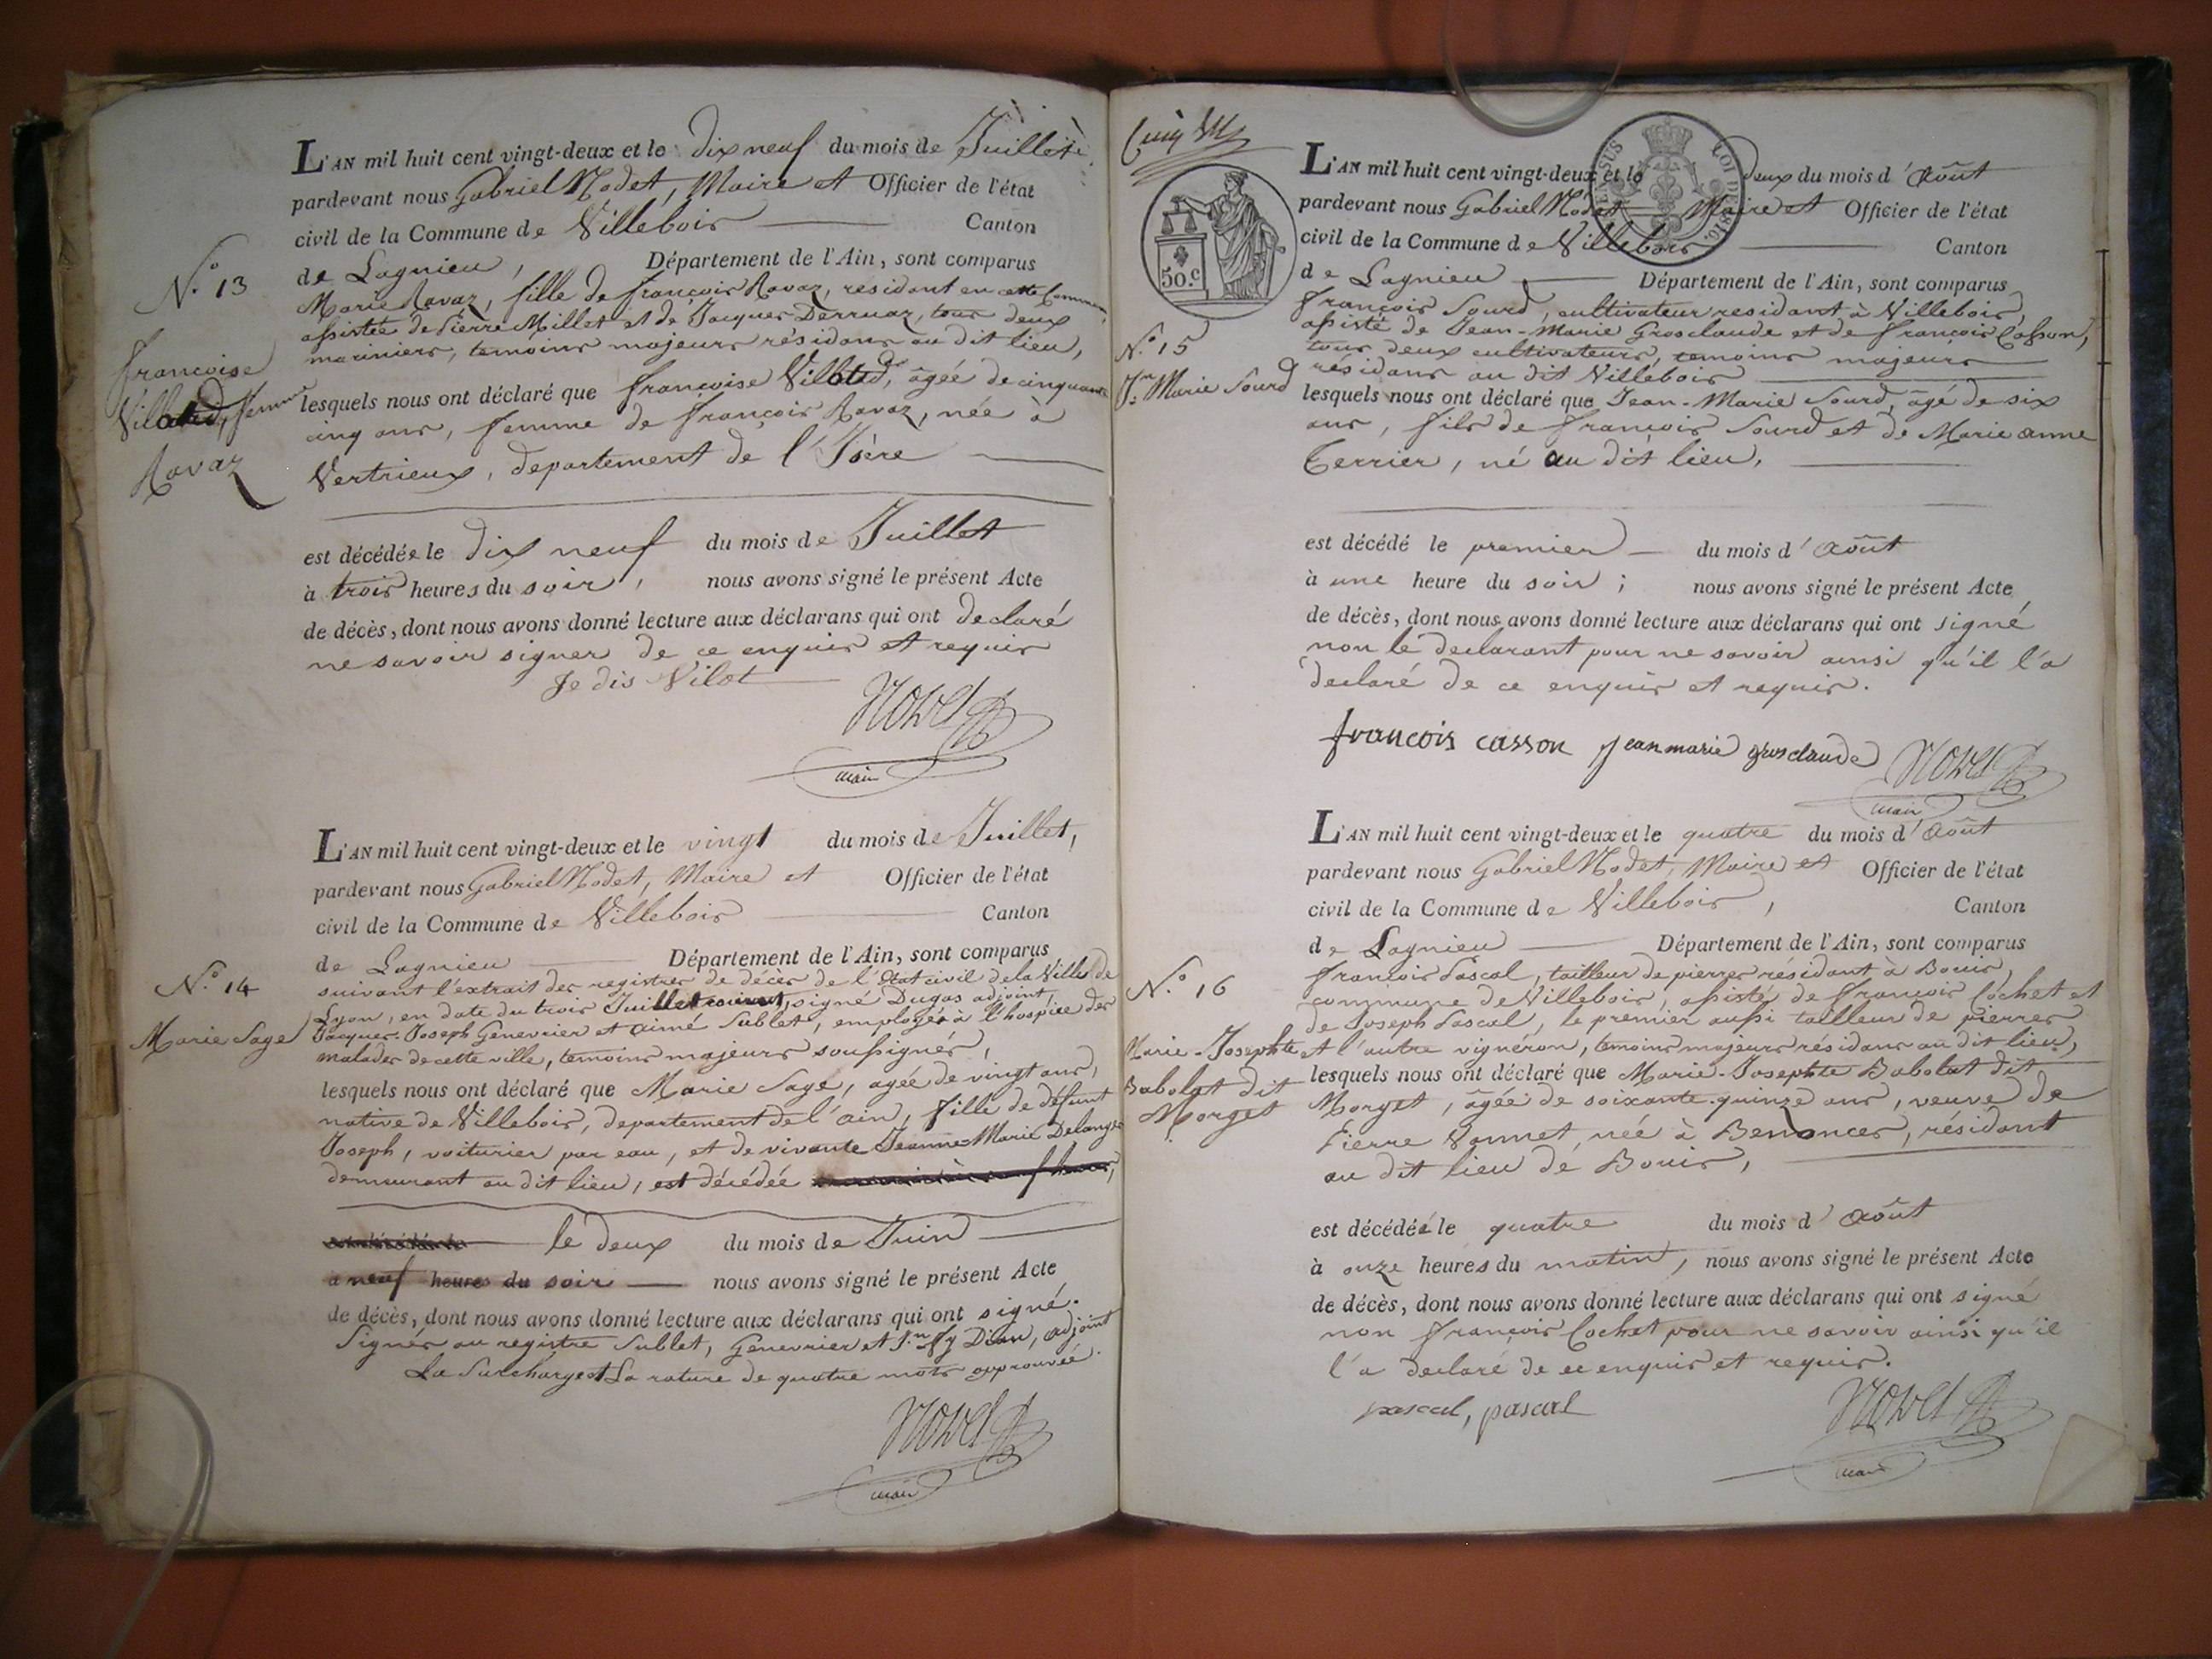 L'AN mil huit cent vingt-deux et le dix neuf du mois de Juillet
pardevant nous Gabriel Nodet, Maire et Officier de l'état
civil de la Commune de Villebois Canton
de Lagnieu, Département de l'Ain, sont comparus
N.° 13
Marie Ravaz, fille de françois Ravaz, résidant en cette Commune,
assistée de Pierre Millet et de Jacques Derruaz, tous deux
mariniers, temoins majeurs résidans au dit lieu,
françoise
femme
Ravaz
lesquels nous ont déclaré que françoise âgée de cinquante
cinq ans, femme de françois Ravaz, née à
Vertrieux, departement de l'Isère
est décédée le dix neuf du mois de Juillet
à trois heures du soir, nous avons signé le présent Acte
de décès, dont nous avons donné lecture aux déclarans qui ont declaré
ne savoir signer de ce enquis et requis
Je dis Vilot
Nodet
maire
L'AN mil huit cent vingt-deux et le vingt du mois de Juillet,
pardevant nous Gabriel Nodet, Maire et Officier de l'état
civil de la Commune de Villebois Canton
de Lagnieu Département de l'Ain, sont comparus
N.° 14
Marie Sage
suivant l'extrait des registres de décès de l'Etat civil de la Ville de
Lyon, en date du trois Juillet courant, signé Dugas adjoint
Jacques-Joseph Genevrier et aimé Sublet, employés à l'hospice des
malades de cette ville, temoins majeurs soussignes,
lesquels nous ont déclaré que Marie Sage, agée de vingt ans,
native de Villebois, departement de l'ain, fille de défunt
Joseph, voiturier par eau, et de vivante Jeanne-Marie Delanges
demeurant au dit lieu, est décédée
le deux du mois de Juin
à neuf heures du soir nous avons signé le présent Acte
de décès, dont nous avons donné lecture aux déclarans qui ont signé.
Signés au registre Sublet, Genevrier et adjoint
La Surcharge et La rature de quatre mots approuvée.
Nodet
maire
50.c
N.° 15
J.n Marie Sourd
L'AN mil huit cent vingt-deux et le deux du mois d'Août
pardevant nous Gabriel Nodet Maire et Officier de l'état
civil de la Commune de Villebois Canton
de Lagnieu Département de l'Ain, sont comparus
françois Sourd, cultivateur residant à Villebois,
assisté de Jean-Marie Grosclaude et de françois Casson,
tous deux cultivateurs, temoins majeurs
résidans au dit Villebois
lesquels nous ont déclaré que Jean-Marie Sourd, âgé de six
ans, fils de françois Sourd et de Marie anne
Terrier, né au dit lieu,
est décédé le premier du mois d'Août
à une heure du soir; nous avons signé le présent Acte
de décès, dont nous avons donné lecture aux déclarans qui ont signé
non le declarant pour ne savoir ainsi qu'il l'a
declaré de ce enquis et requis.
francois casson jean marie grosclaude Nodet
maire
L'AN mil huit cent vingt-deux et le quatre du mois d'Août
pardevant nous Gabriel Nodet, Maire et Officier de l'état
civil de la Commune de Villebois, Canton
de Lagnieu Département de l'Ain, sont comparus
N.° 16
Marie-Josephte
Babolat dit
Morget
françois Pascal, tailleur de pierres résidant à Bouis,
commune de Villebois, assisté de françois Cochet et
de Joseph Pascal, le premier aussi tailleur de pierres
et l'autre vigneron, temoins majeurs résidans au dit lieu,
lesquels nous ont déclaré que Marie-Josephte Babolat dit
Morget, âgée de soixante-quinze ans, veuve de
Pierre Vonnet, née à Benonces, résidant
au dit lieu de Bouis,
est décédée le quatre du mois d'Août
à onze heures du matin, nous avons signé le présent Acte
de décès, dont nous avons donné lecture aux déclarans qui ont signé
non françois Cochet pour ne savoir ainsi qu'il
l'a declaré de ce enquis et requis.
pascal, pascal Nodet
maire